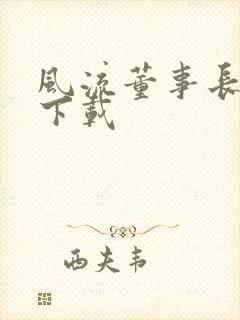 風流董事長
下載
西夫韦